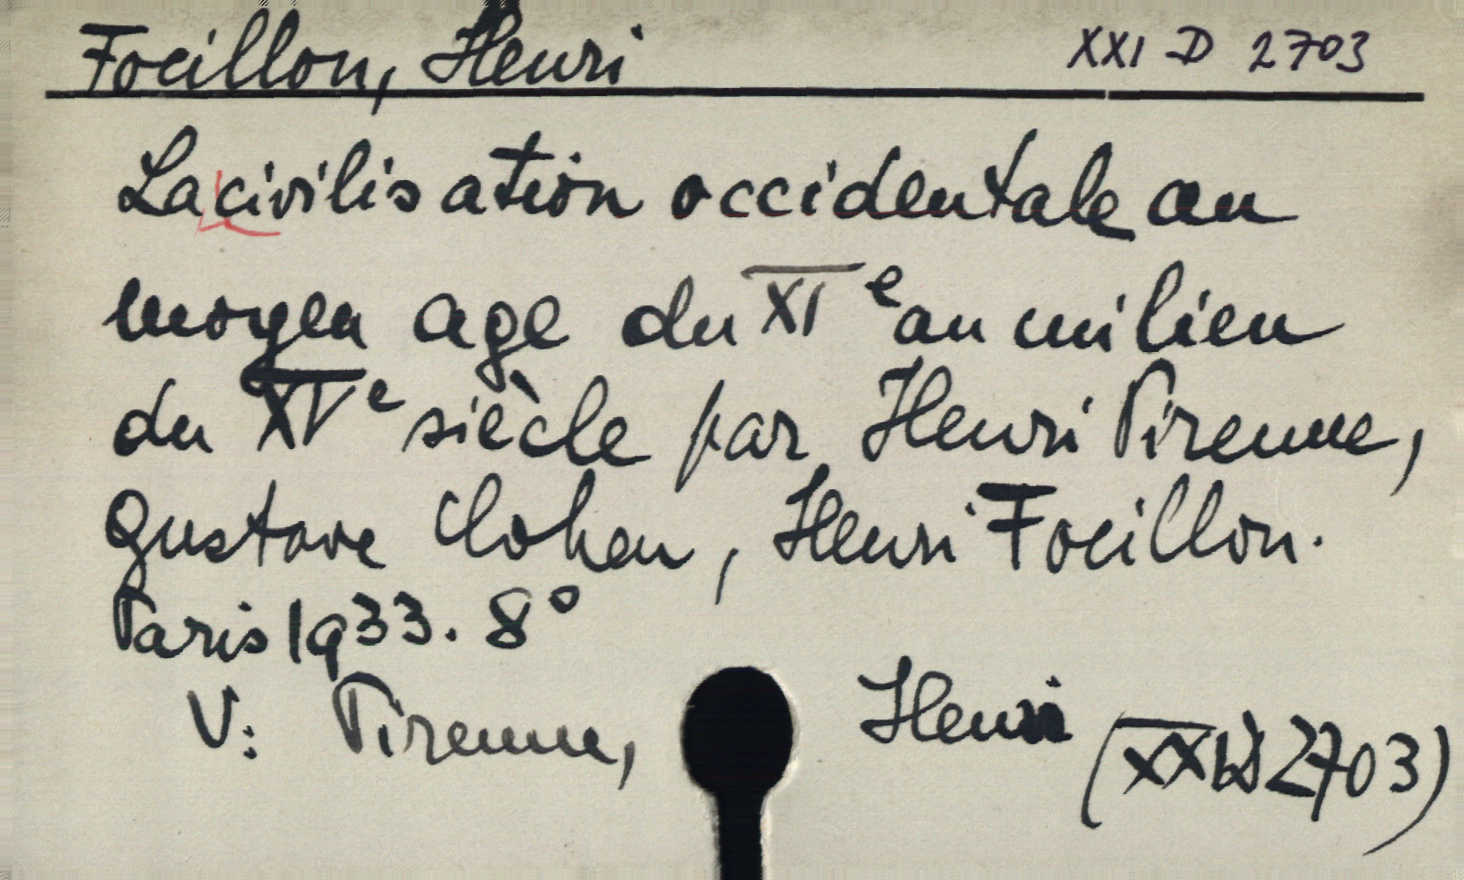 Focillon, Henri XXI D 2703
La civilisation occidentale au
moyen age du XI e au milieu
du XV e siècle par Henri Pirenne,
Gustave Cohen, Henri Focillon.
Paris 1933. 8°
V: Pirenne, Henri
(XXI D 2703)